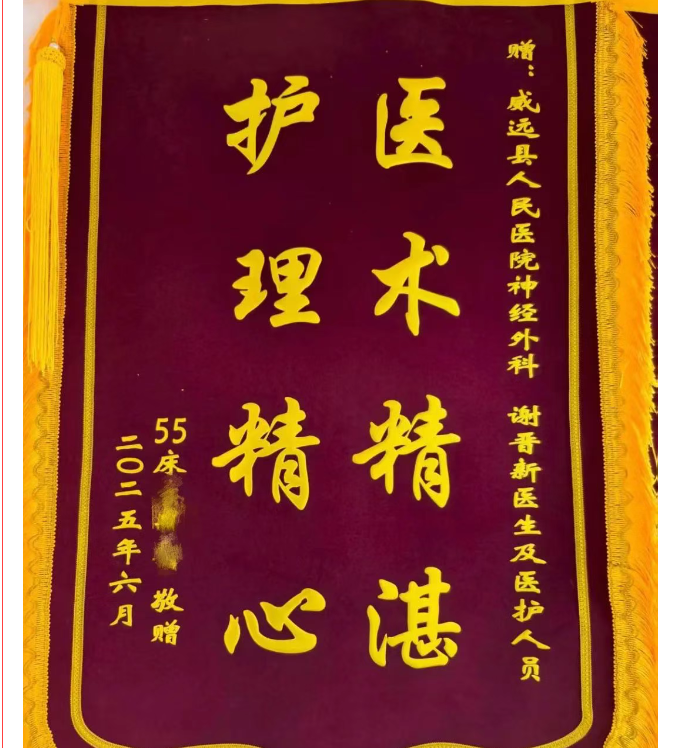 赠：威远县人民医院神经外科 谢晋新医生及医护人员
医术精湛
护理精心
55床 敬赠
二〇二五年六月